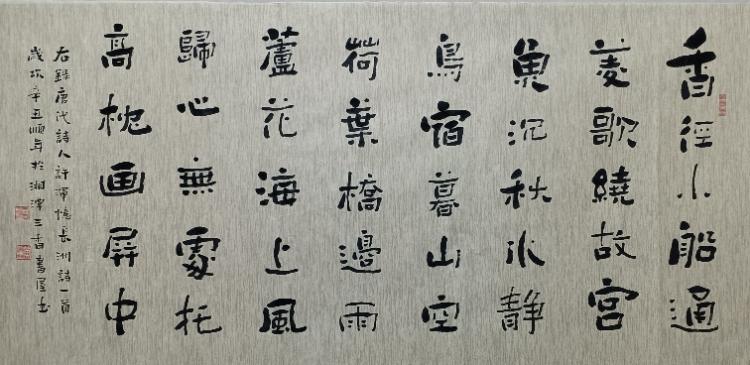 香徑小船通
菱歌繞故宮
魚沉秋水静
鳥宿暮山空
荷葉橋邊雨
蘆花海上風
歸心無處托
高枕画屏中
右録唐代詩人許渾憶長洲詩一首
歲次辛丑順年於湘潭三香書屋